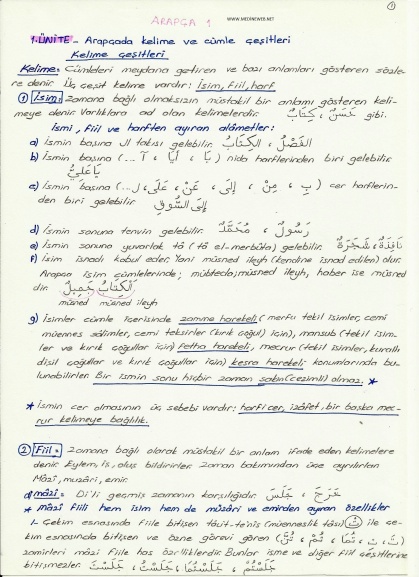 ①
ARAPÇA 1
WWW.MEDINEWEB.NET
1.ÜNİTE - Arapçada kelime ve cümle çeşitleri
Kelime çeşitleri
Kelime: Cümleleri meydana getiren ve bazı anlamları gösteren sözle-
re denir. Üç çeşit kelime vardır: İsim, Fiil, harf
① İsim: Zamana bağlı olmaksızın müstakil bir anlamı gösteren keli-
meye denir. Varlıklara ad olan kelimelerdir. حَسَنٌ ، كِتَابٌ gibi.
İsmi, Fiil ve harften ayıran alâmetler:
a) İsmin başına ال takısı gelebilir. الْفَضْلُ ، الْكِتَابُ
b) İsmin başına (... آ ، أَيَا ، يَا) nida harflerinden biri gelebilir.
يَا عَلِيُّ
c) İsmin başına (... بِ ، مِنْ ، إِلَى ، عَنْ ، عَلَى ، لِ) cer harflerin-
den biri gelebilir. إِلَى السُّوقِ
d) İsmin sonuna tenvin gelebilir. رَسُولٌ ، مُحَمَّدٌ
e) İsmin sonuna yuvarlak tâ (tâ el-merbûta) gelebilir. نَافِذَةٌ ، شَجَرَةٌ
f) İsim isnadı kabul eder. Yani müsned ileyh (kendine isnad edilen) olur.
Arapça isim cümlelerinde; mübteda; müsned ileyh, haber ise müsned
dir. الْكِتَابُ جَمِيلٌ
müsned müsned ileyh
g) İsimler cümle içerisinde zamme harekeli (merfu tekil isimler, cemi
müennes sâlimler, cemi teksirler (kırık çoğul) için), mansub (tekil isim-
ler ve kırık çoğullar için) fetha harekeli, mecrur (tekil isimler, kurallı
dişil çoğullar ve kırık çoğullar için) kesra harekeli konumlarında bu-
lunabilirler. Bir ismin sonu hiçbir zaman sakin (cezimli) olmaz. *
* İsmin cer olmasının üç sebebi vardır: harfi cer, izâfet, bir başka mec-
rur kelimeye bağlılık.
② Fiil: Zamana bağlı olarak müstakil bir anlam ifade eden kelimelere
denir. Eylem, iş, oluş bildirirler. Zaman bakımından üçe ayrılırlar.
Mâzi, muzâri, emir.
a) mâzi = Di'li geçmiş zamanın karşılığıdır. خَرَجَ ، جَلَسَ
* mâzi Fiili hem isim hem de müzâri ve emirden ayıran özellikler
1- Çekim esnasında fiile bitişen tâu't-te'nis (müenneslik tâsı) (تْ) ile çe-
kim esnasında bitişen ve özne görevi gören (تَ ، تِ ، تُمَا ، تُمْ ، تُنَّ)
zamirleri mâzi fiile has özelliklerdir. Bunlar isme ve diğer fiil çeşitlerine
bitişmezler. جَلَسْتُمْ ، جَلَسْتُمَا ، جَلَسْتُ ، جَلَسْتَ